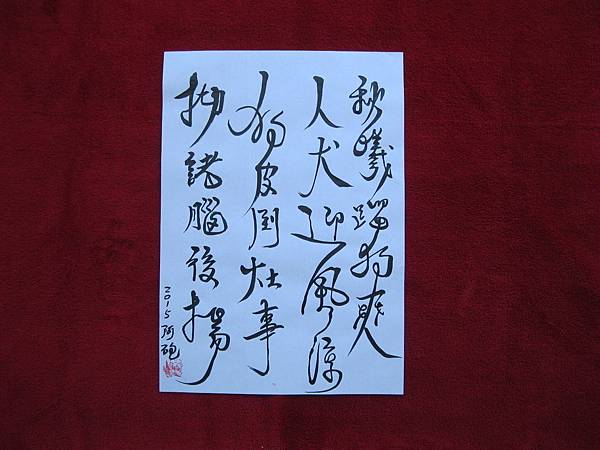 秋曦蹓狗爽
人犬迎風涼
狗皮倒灶事
拋諸腦後揚
2015 阿砲